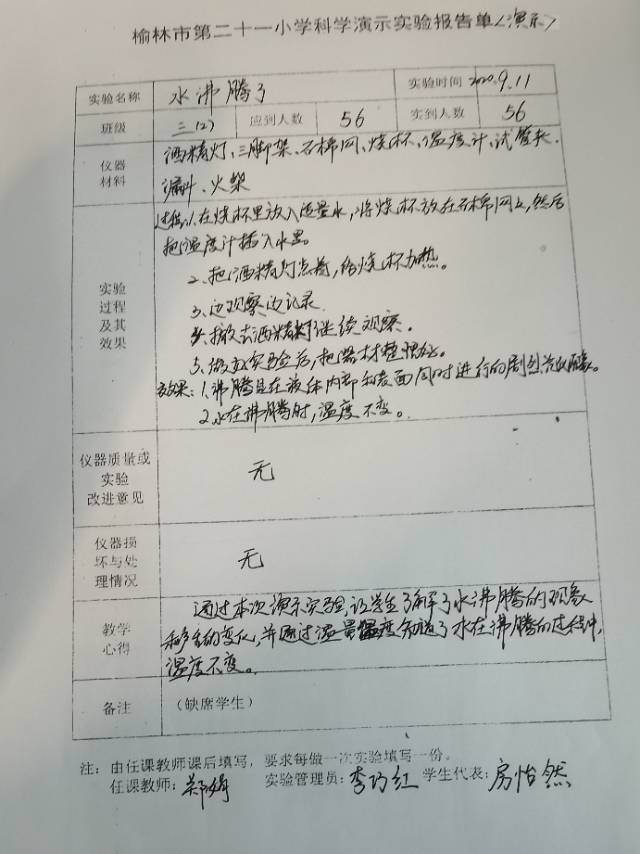 榆林市第二十一小学科学演示实验报告单(演示)
实验名称 水沸腾了 实验时间 2020.9.11
班级 三(2) 应到人数 56 实到人数 56
仪器材料 酒精灯、三脚架、石棉网、烧杯、温度计、试管夹、
漏斗、火柴
实验过程及其效果
过程:1.在烧杯里放入适量水,将烧杯放在石棉网上,然后
把温度计插入水里。
2、把酒精灯点着,给烧杯加热。
3、边观察边记录.
4、撤去酒精灯继续观察。
5、做完实验后,把器材整理好。
效果:1.沸腾是在液体内部和表面同时进行的剧烈汽化
2.水在沸腾时,温度不变。
仪器质量或实验改进意见 无
仪器损坏与处理情况 无
教学心得
通过本次演示实验,让学生了解了水沸腾的现象
和的变化,并通过温度知道了水在沸腾的过程中,
温度不变。
备注 (缺席学生)
注:由任课教师课后填写,要求每做一次实验填写一份。
任课教师:郑娟 实验管理员:李巧红 学生代表:房怡然